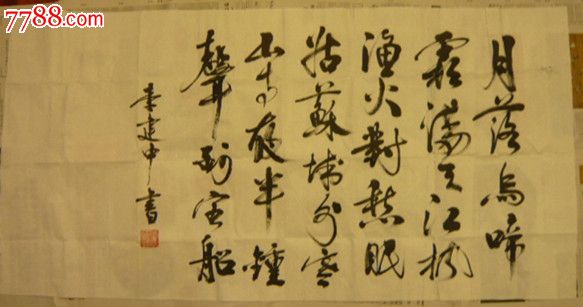 7788.com
月落烏啼
霜滿天江楓
漁火對愁眠
姑蘇城外寒
山寺夜半鐘
聲到客船
李建中書